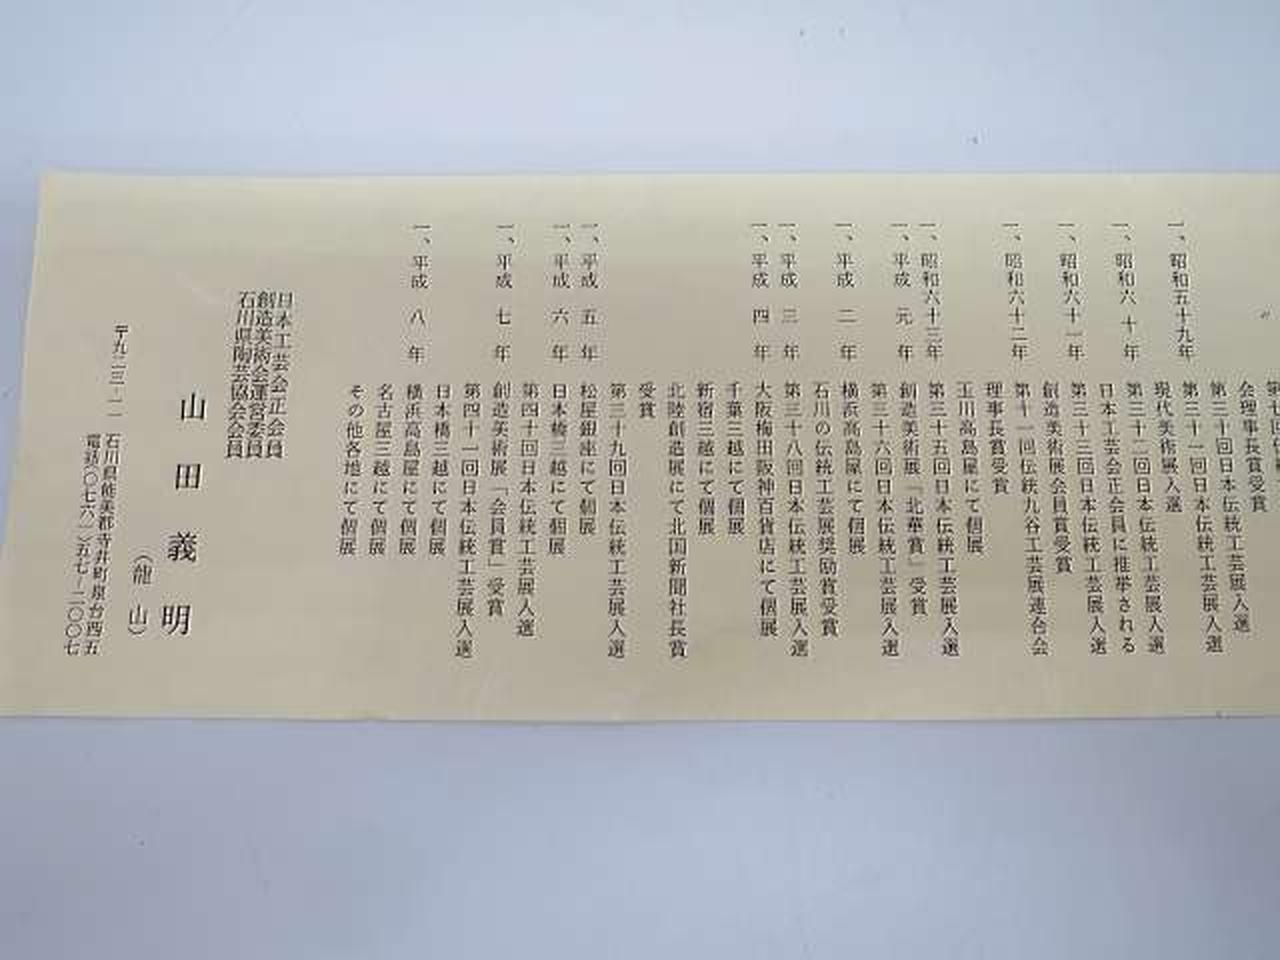 〃
会理事長賞受賞
第三十回日本伝統工芸展入選
第三十一回日本伝統工芸展入選
一、昭和五十九年
現代美術展入選
第三十二回日本伝統工芸展入選
一、昭和六十年
日本工芸会正会員に推挙される
第三十三回日本伝統工芸展入選
一、昭和六十一年
創造美術展会員賞受賞
第十一回伝統九谷工芸展連合会
一、昭和六十二年
理事長賞受賞
玉川高島屋にて個展
第三十五回日本伝統工芸展入選
一、昭和六十三年
創造美術展「北華賞」受賞
一、平成元年
第三十六回日本伝統工芸展入選
横浜高島屋にて個展
一、平成二年
石川の伝統工芸展奨励賞受賞
第三十八回日本伝統工芸展入選
一、平成三年
大阪梅田阪神百貨店にて個展
一、平成四年
千葉三越にて個展
新宿三越にて個展
北陸創造展にて北国新聞社長賞
受賞
第三十九回日本伝統工芸展入選
一、平成五年
松屋銀座にて個展
一、平成六年
日本橋三越にて個展
第四十回日本伝統工芸展入選
一、平成七年
創造美術展「会員賞」受賞
第四十一回日本伝統工芸展入選
日本橋三越にて個展
一、平成八年
横浜高島屋にて個展
名古屋三越にて個展
その他各地にて個展
日本工芸会正会員
創造美術会運営委員
石川県陶芸協会会員
山田義明
（龍山）
〒九二三-一一
石川県能美郡寺井町泉台西五
電話〈〇七六一〉五七-二〇〇七